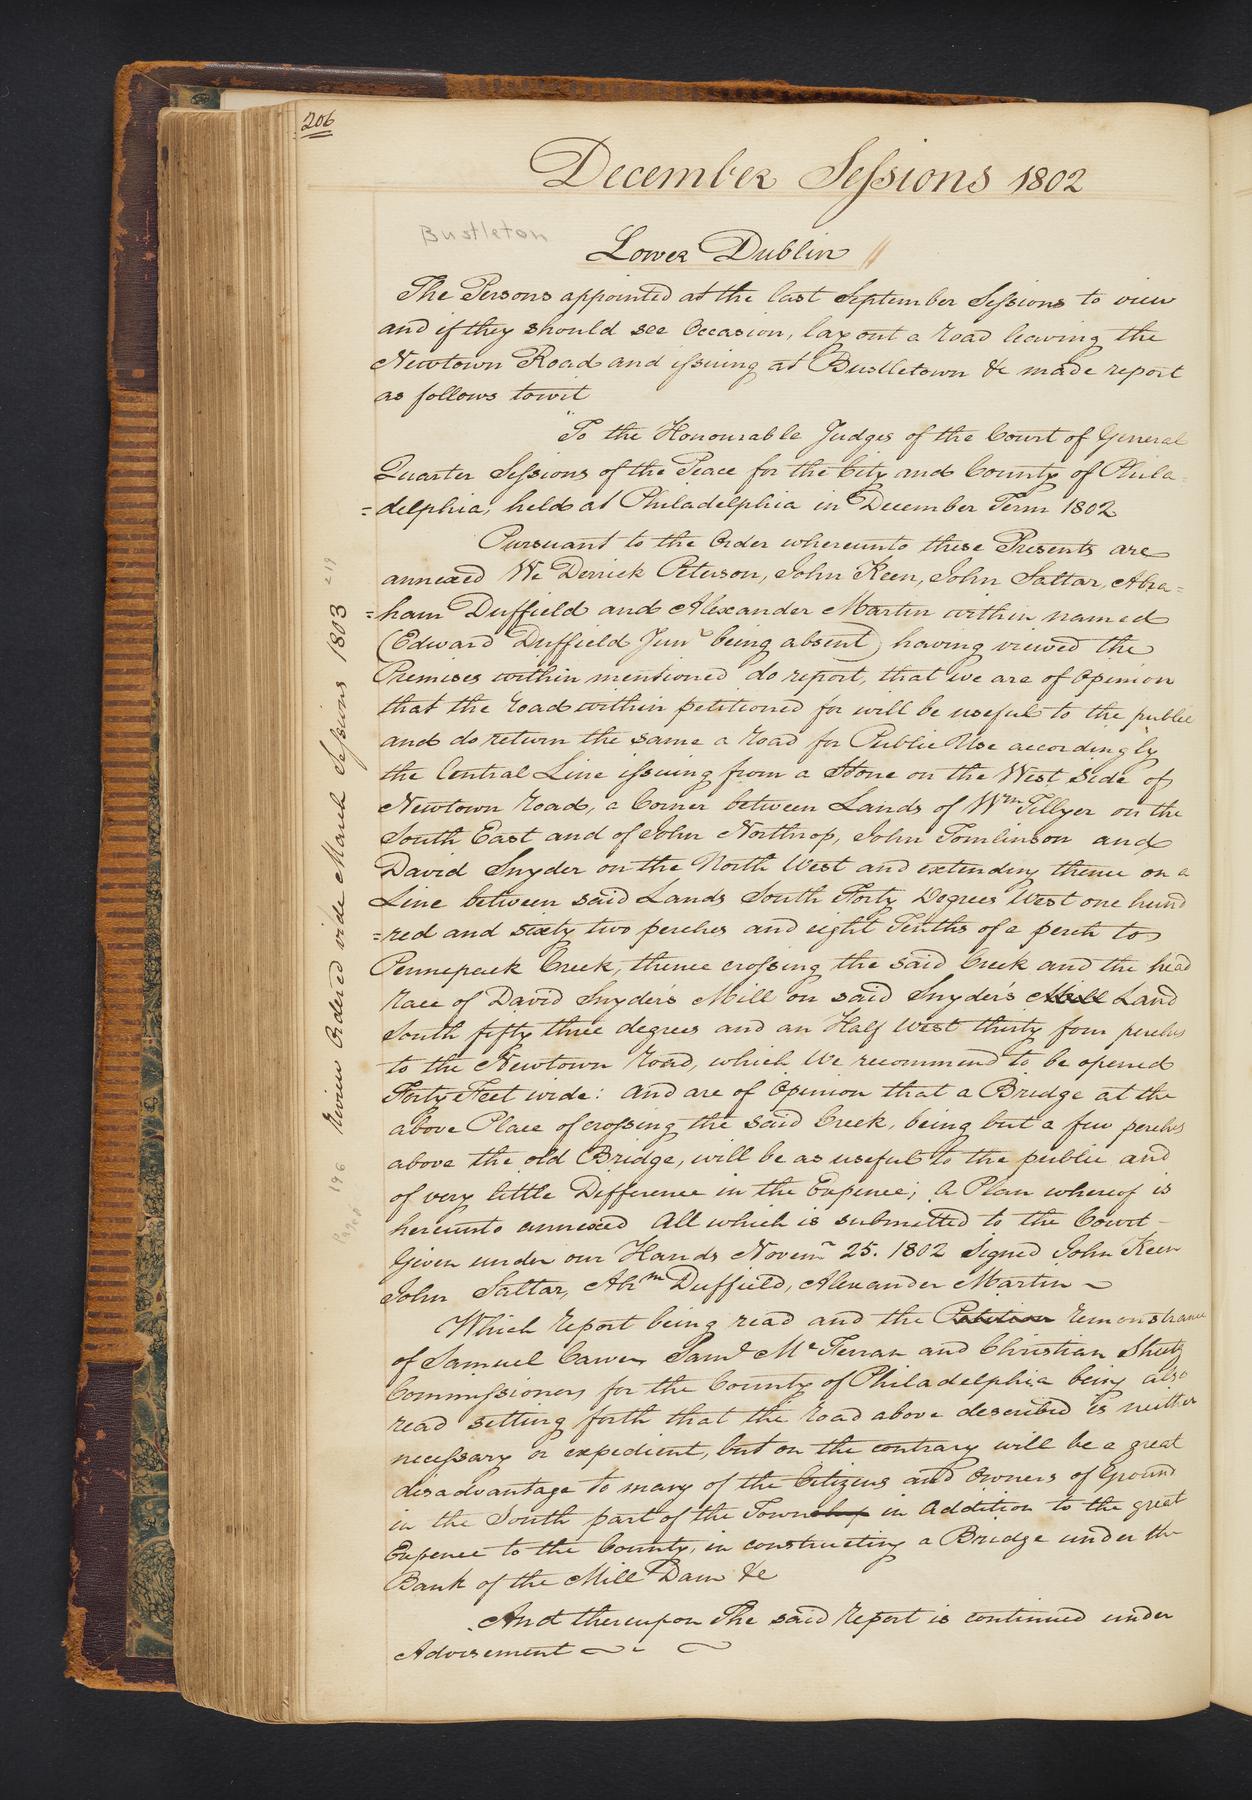 206
December Sessions 1802
Bustleton
Lower Dublin
The Persons appointed at the last September Sessions to view
and if they should see Occasion, lay out a road leaving the
Newtown Road and issuing at Bustletown &c made report
as follows towit
"To the Honourable Judges of the Court of General
Quarter Sessions of the Peace for the City and County of Phila=
=delphia, held at Philadelphia in December Term 1802
Pursuant to the Order whereunto these Presents are
annexed We Derrick Peterson, John Keen, John Saltar, Abra=
=ham Duffield and Alexander Martin within named
(Edward Duffield Junr being absent) having viewed the
Premises within mentioned do report, that we are of Opinion
that the road within petitioned for will be useful to the public
and do return the same a road for Public Use accordingly
the Central Line issuing from a Stone on the West Side of
Newtown road, a Corner between Lands of Wm Tillyer on the
South East and of John Northrop, John Tomlinson and
David Snyder on the North West and extending thence on a
Line between said Lands South Forty Degrees West one hund
=red and sixty two perches and eight Tenths of a perch to
Pennepack Creek, thence crossing the said Creek and the head
race of David Snyder's Mill on said Snyder's Mill Land
South fifty three degrees and an Half West thirty four perches
to the Newtown road, which We recommend to be opened
Forty Feet wide: And are of Opinion that a Bridge at the
above Place of crossing the said Creek, being but a few perches
above the old Bridge, will be as useful to the public and
of very little Difference in the Expence; A Plan whereof is
hereunto annexed All which is submitted to the Court -
Given under our Hands Novemr 25. 1802 Signed John Keen
John Saltar, Abm Duffield, Alexander Martin
Which report being read and the Petition remonstrance
of Samuel Carver, Saml McFerran and Christian Sheetz
Commissioners for the County of Philadelphia being also
read setting forth that the road above described is neither
necessary or expedient, but on the contrary will be a great
disadvantage to many of the Citizens and Owners of Ground
in the South part of the Township in Addition to the great
Expence to the County, in constructing a Bridge under the
Bank of the Mill Dam &c
And thereupon The said report is continued under
Advisement
Pages 196 Review Ordered vide March Sessions 1803 219